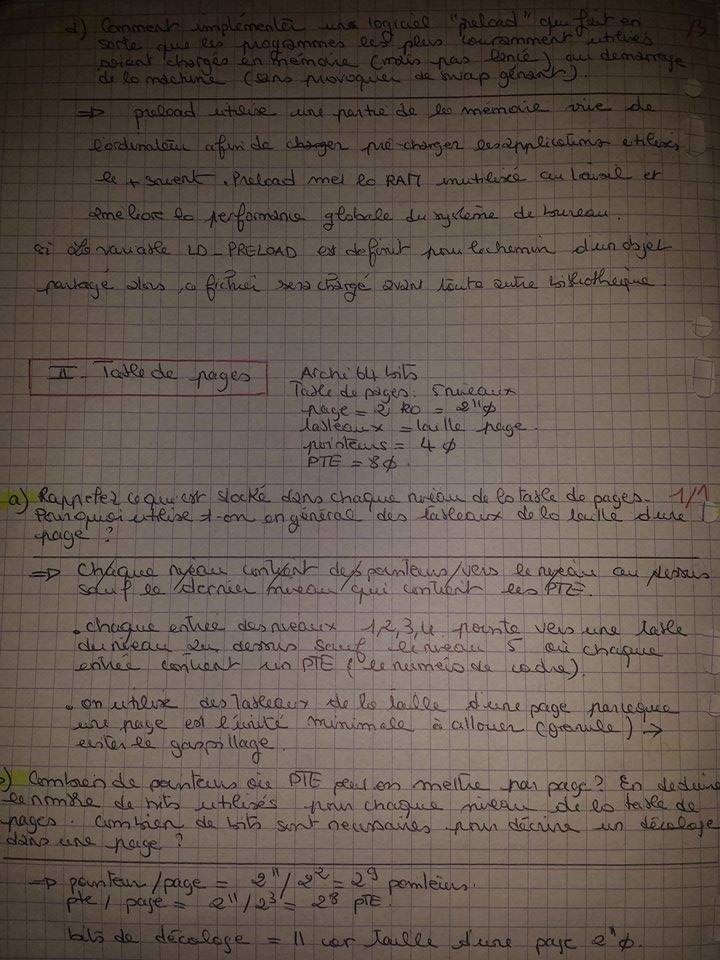 d) Comment implémenter un logiciel "preload" qui fait en
sorte que les programmes les plus couramment utilisés
soient chargés en mémoire (mais pas lancé) au démarrage
de la machine (sans provoquer de swap gênant).
⇒ preload utilise une partie de la mémoire vive de
l'ordinateur afin de charger pré-charger les applications utilisés
le + souvent. Preload met la RAM inutilisée au travail et
améliore la performance globale du système de bureau.
si la variable LD_PRELOAD est definit pour le chemin d'un objet
partagé alors, ce fichier sera chargé avant toute autre bibliothèque.
II - Table de pages
Archi 64 bits
Table de pages: 5 niveaux
page = 2 ko = 2^11 φ
tableaux = taille page.
pointeurs = 4 φ
PTE = 8 φ.
a) Rappeler ce qui est stocké dans chaque niveau de la table de pages. 1/1
Pourquoi utilise-t-on en général des tableaux de la taille d'une
page ?
⇒ Chaque niveau contient des pointeurs vers le niveau au dessus
sauf le dernier niveau qui contient les PTE.
• chaque entrée des niveaux 1,2,3,4 pointe vers une table
du niveau au dessus sauf le niveau 5 où chaque
entrée contient un PTE (le numéro de cadre).
• on utilise des tableaux de la taille d'une page parceque
une page est l'unité minimale à allouer (granule) →
eviter le gaspillage.
b) Combien de pointeurs ou PTE peut on mettre par page ? En deduire
le nombre de bits utilisés pour chaque niveau de la table de
pages. Combien de bits sont necessaires pour décrire un décalage
dans une page ?
⇒ pointeur/page = 2^11 / 2^2 = 2^9 pointeurs.
pte / page = 2^11 / 2^3 = 2^8 PTE.
bits de décalage = 11 car taille d'une page 2^11 φ.